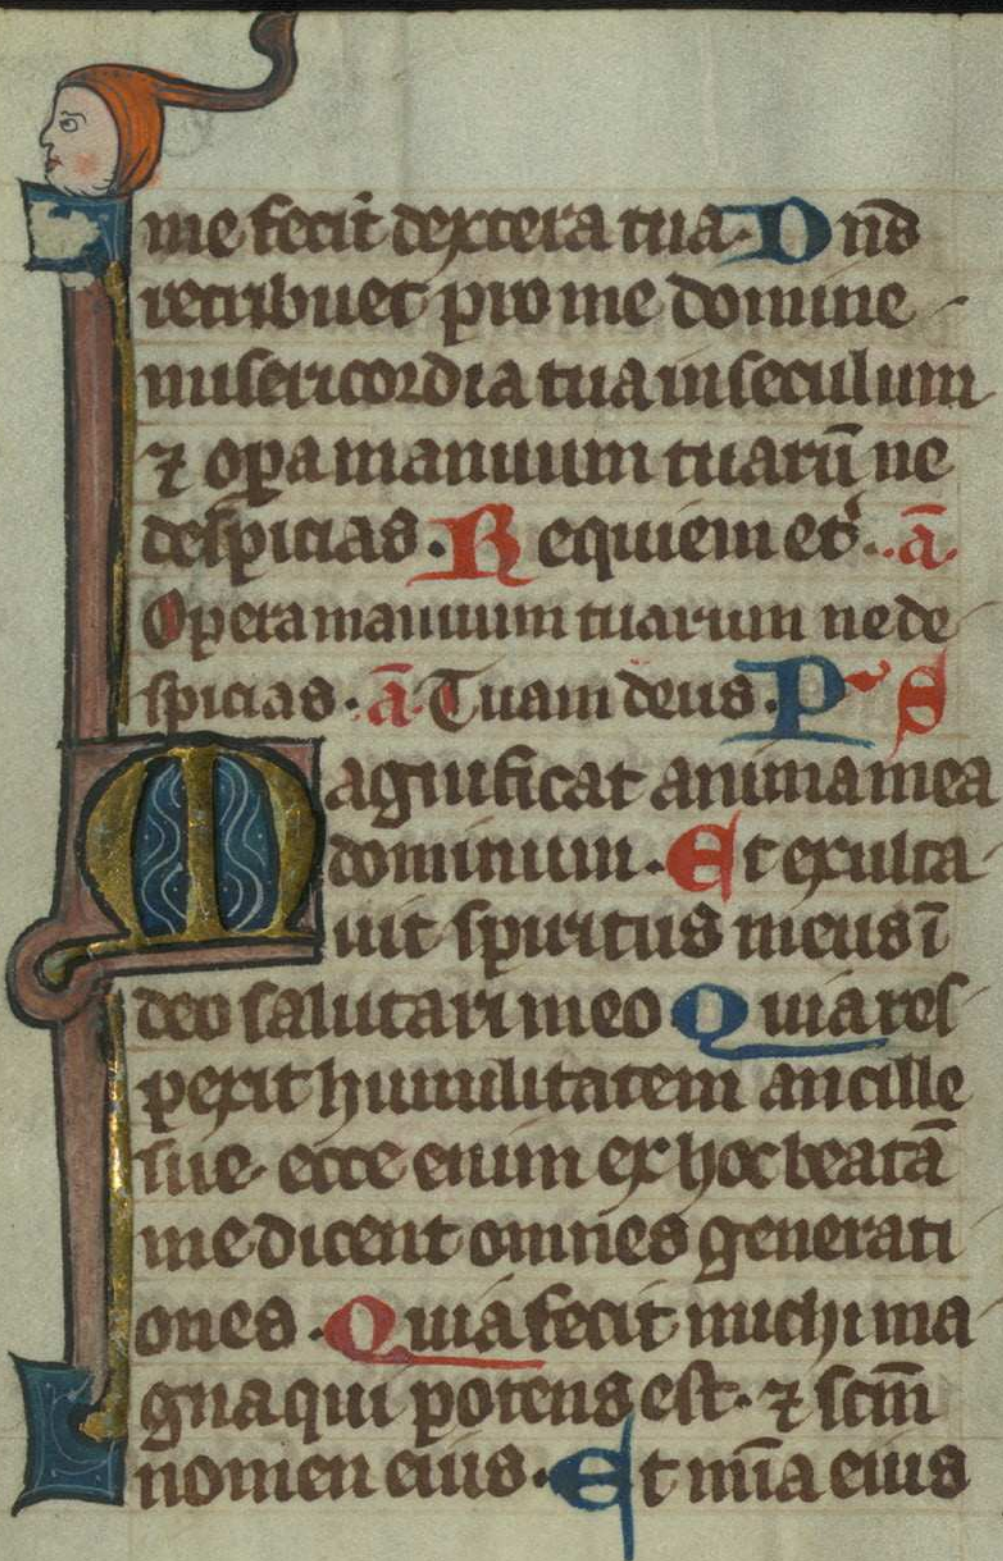 me fecit dextera tua. Dn̄s
retribuet pro me domine
misericordia tua in seculum
⁊ oꝑa manuum tuarū ne
despicias. Requiem etꝰ. ā
Opera manuum tuarum ne de
spicias. ā. Tuam deus. P S
Magnificat anima mea
dominum. Et exulta
uit spiritus meus ī
deo salutari meo Quia res
pexit humilitatem ancille
sue. ecce enim ex hoc beatā
me dicent omnes generati
ones. Quia fecit michi ma
gna qui potens est. ⁊ scm̄
nomen eius. Et mīa eius